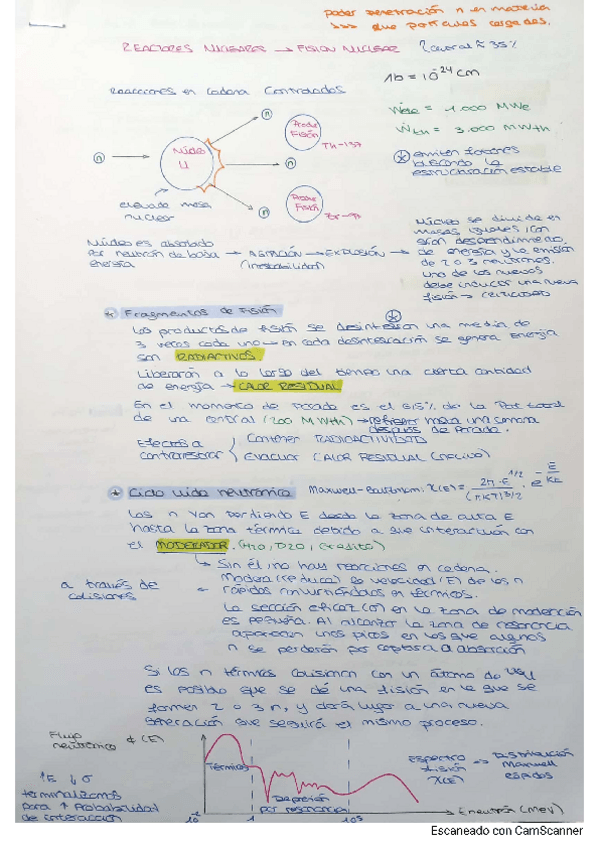 poder penetración n en materia
>>> que partículas cargadas.
REACTORES NUCLEARES → FISION NUCLEAR ? ≈ 35%
1b = 10⁻²⁴ cm
Reacciones en Cadena Controladas
Ẇele = 1.000 MWe
Ẇth = 3.000 MWth
n
n
n
n
Núcleo
U
Produc
Fisión
Th-137
Produc
Fisión
* emiten fotones
buscando la
estructuración estable
elevada masa
nuclear
Núcleo es absorbido
por neutrón de baja
energía
→ AGITACIÓN → EXPLOSIÓN →
(inestabilidad)
Núcleo se divide en
masas iguales con
gran desprendimiento
de energía y la emisión
de 2 o 3 neutrones.
Uno de los nuevos
debe inducir una nueva
fisión → CRITICIDAD
* Fragmentos de Fisión
Los productos de fisión se desintegran una media de
3 veces cada uno → en cada desintegración se genera energía
son RADIACTIVOS
Liberarán a lo largo del tiempo una cierta cantidad
de energía → CALOR RESIDUAL
En el momento de parada es el 6,5% de la Pot total
de una central (200 MWth) → refrigerar
después de parada.
Efectos a
contrarrestar
Contener RADIOACTIVIDAD
Evacuar CALOR RESIDUAL (nocivo)
* Ciclo vida neutrónica Maxwell-Boltzmann: χ(E) =
Los n van perdiendo E desde la zona de alta E
hasta la zona térmica debido a que interacción con
el MODERADOR. (H2O, D2O, Grafito)
a través de
colisiones
Sin él, no hay reacciones en cadena.
Modera (reduce) la velocidad (E) de los n
rápidos convirtiéndolos en térmicos.
La sección eficaz (σ) en la zona de moderación
es pequeña. Al alcanzar la zona de resonancia
aparecen unos picos en los que algunos
n se perderán por captura o absorción
Si los n térmicos colisionan con un átomo de
es posible que se dé una fisión en la que se
formen 2 o 3 n, y dará lugar a una nueva
generación que seguirá el mismo proceso.
Flujo
neutrónico
ϕ(E)
↑E ↓σ
termalizamos
para ↑ Probabilidad
de interacción
Térmicos
Depresión
por resonancia
Espectro
fisión
χ(E)
⇒ Distribución
Maxwell
rápidos
1
E neutrón (MeV)
Escaneado con CamScanner